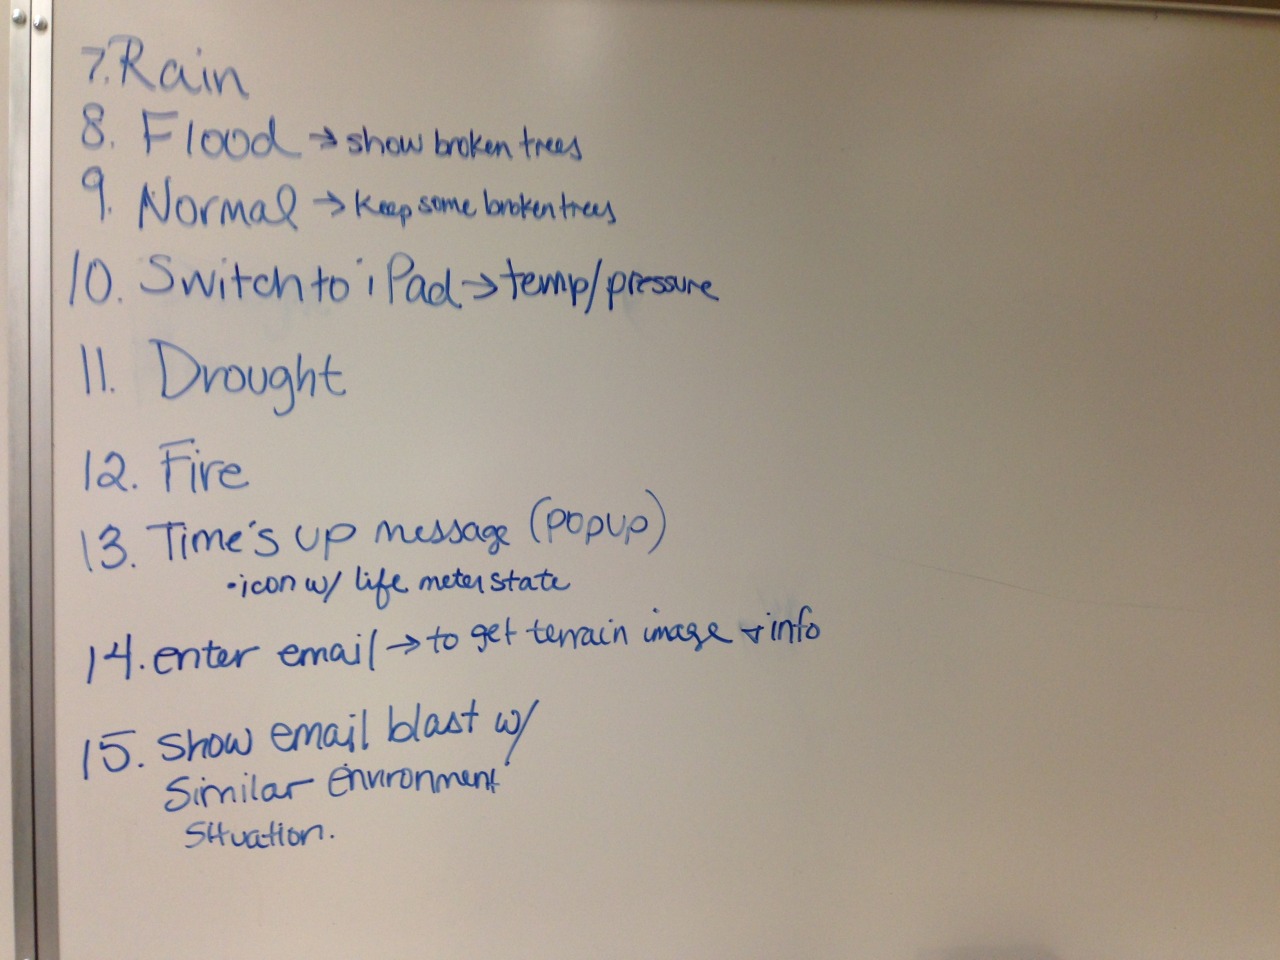 7. Rain
8. Flood → show broken trees
9. Normal → keep some broken trees
10. Switch to iPad → temp/pressure
11. Drought
12. Fire
13. Time's up message (popup)
• icon w/ life meter state
14. enter email → to get terrain image + info
15. Show email blast w/
Similar environment
Situation.